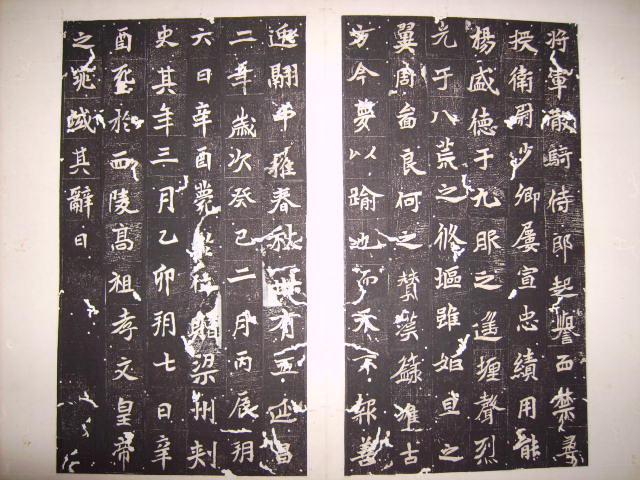 將軍散騎侍郎起譽西禁尋
授衛尉少卿屢宣忠績用能
楊盛德于九服之遙㙻聲烈
光于八荒之脩堰雖姬旦之
翼周良何之贊漢籙准古
方今蔑以踰也而天不報善
逝翮中摧春秋有五延昌
二年歲次癸巳二月丙辰朔
六日辛酉薨贈梁州刺
史其年三月乙卯朔七日辛
酉葬於西陵高祖孝文皇帝
之兆域其辭曰